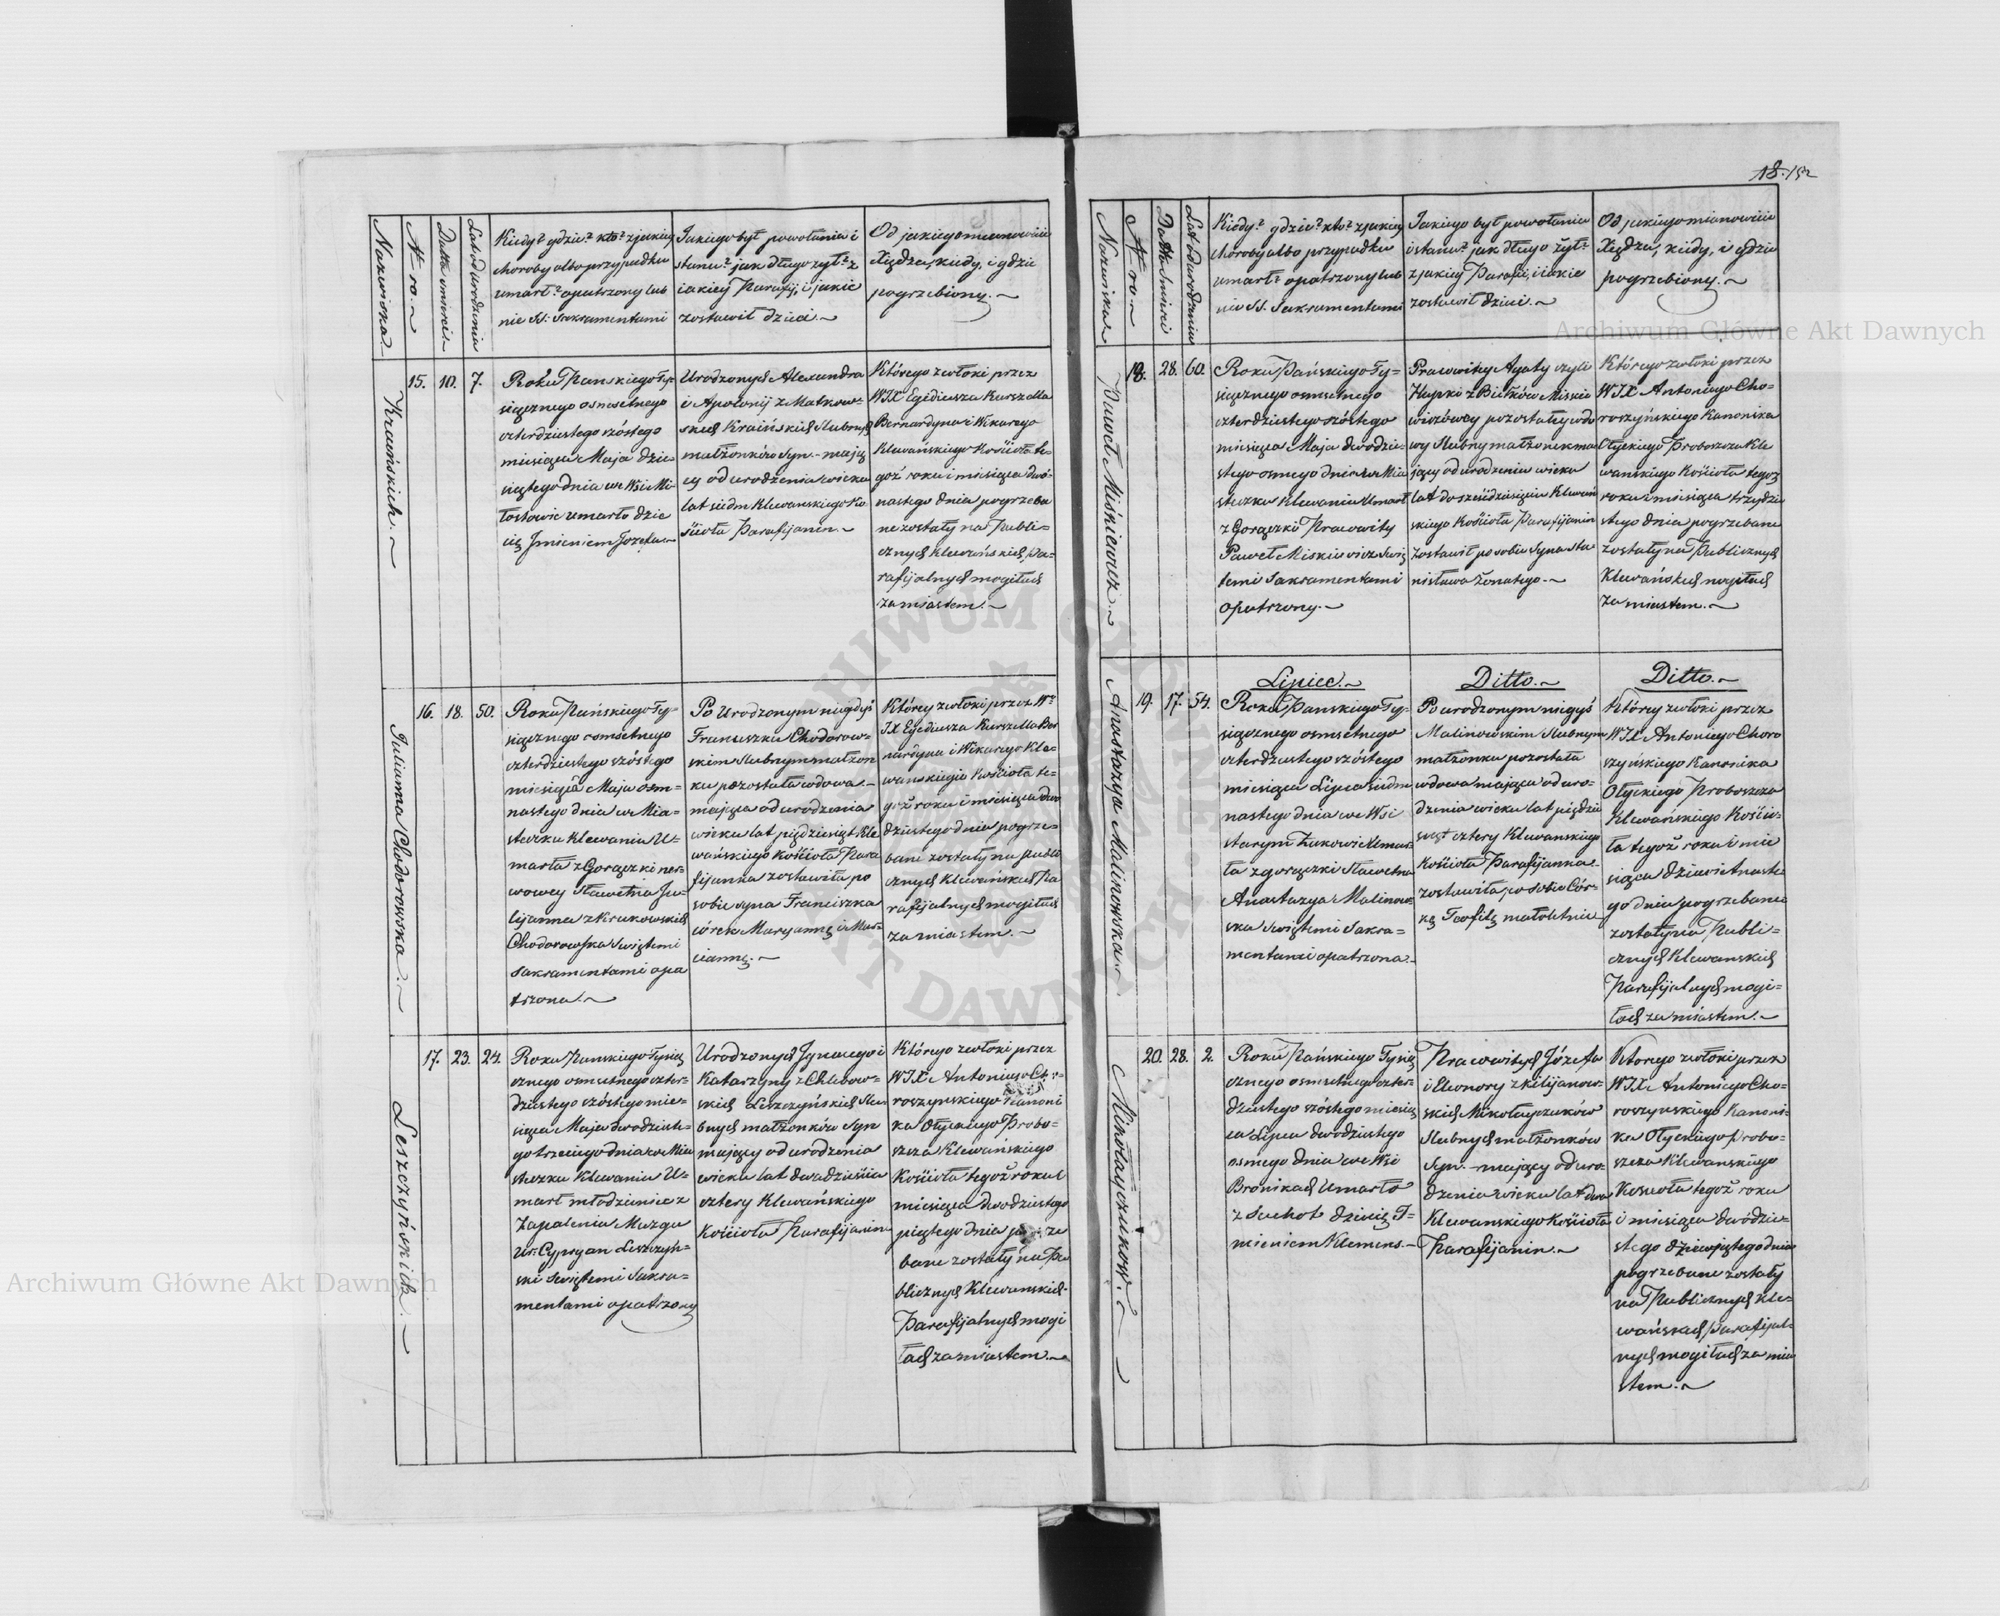 18. 152
Nazwiska.
N-ro.
Datta śmierci.
Lat od urodzenia
Kiedy? gdzie? kto? z jakiey
choroby albo przypadku
umarł? opatrzony lub
nie SS: Sakramentami
Jakiego był powołania i
stanu? jak długo żył? z
iakiey Parafij, i jakie
zostawił dzieci.
Od jakiego mianowicie
Xiędza, kiedy, i gdzie
pogrzebiony.
Kraińskich.
15.
10.
7.
Roku Pańskiego Ty-
siącznego osmsetnego
czterdziestego szóstego
miesiąca Maja dzie-
siątego dnia we Wsi Mi-
łostowie umarło dzie
cię Imieniem Józef
Urodzonych Alexandra
i Apolonij z Matkow-
skich Kraińskich slubnych
małżonków Syn mają
cy od urodzenia wieku
lat siedm Klewanskiego Ko
ścioła Parafijanin
Którego zwłoki przez
WJX Egidiusza Kurszella
Bernardyna i Wikarego
Klewańskiego Kościoła te-
goż roku i miesiąca dwó-
nastego dnia pogrzeba
ne zostały na Publi-
cznych Klewańskich Pa-
rafijalnych mogiłach
za miastem.
Julianna Chodorowska.
16.
18.
50.
Roku Pańskiego Ty-
siącznego osmsetnego
czterdziestego szóstego
miesiąca Maja osm-
nastego dnia w Mia-
steczku Klewaniu U-
marła z Gorączki ner-
wowey Sławetna Ju-
lijanna z Krukowskich
Chodorowska Swiętemi
Sakramentami opa
trzona.
Po Urodzonym niegdyś
Franciszku Chodorow-
skim slubnym małżon
ku pozostała wdowa
mająca od urodzenia
wieku lat pięćdziesiąt Kle
wańskiego Kościoła Para
fijanka zostawiła po
sobie syna Franciszka
córek Maryannę i Mar-
ciannę.
Którey zwłoki przez W
JX Egidiusza Kurszella Ber
nardyna i Wikarego Kle-
wanskiego Kościoła te-
goż roku i miesiąca dwu
dziestego dnia pogrze-
bane zostały na publi
cznych Klewańskich Pa
rafijalnych mogiłach
za miastem.
Leszczyńskich.
17.
23.
24.
Roku Panskiego Tysią
cznego osmsetnego czter-
dziestego szóstego mie-
siąca Maja dwudzieste-
go trzeciego dnia w Mia
steczku Klewaniu U-
marł młodzieniec z
Zapalenia Mózgu
Ur: Cypryan Leszczyń-
ski Swiętemi Sakra-
mentami opatrzony
Urodzonych Ignacego i
Katarzyny z Chlebow-
skich Leszczyńskich slu-
bnych małżonków Syn
mający od urodzenia
wieku lat dwadzieścia
cztery Klewańskiego
Kościoła Parafijanin
Którego zwłoki przez
WJX Antoniego Cho-
roszynskiego Kanoni
ka Ołyckiego Probo-
szcza Klewańskiego
Kościoła tegoż roku i
miesiąca dwudziestego
piątego dnia pogrze
bane zostały na Pu
blicznych Klewanskich
Parafijalnych mogi
łach za miastem.
Nazwiska
N-ro.
Datta śmierci
Lat od urodzenia
Kiedy? gdzie? kto? z jakiey
choroby albo przypadku
umarł? opatrzony lub
nie SS. Sakramentami
Jakiego był powołania
i stanu? jak długo żył?
z jakiey Parafii, i iakie
zostawił dzieci.
Od jakiego mianowicie
Xiędza, kiedy, i gdzie
pogrzebiony.
Paweł Miśkiewicz.
18.
28.
60.
Roku Pańskiego Ty-
siącznego osmsetnego
czterdziestego szóstego
miesiąca Maja dwudzie-
stego osmego dnia w Mia
steczku Klewaniu Umarł
z Gorączki Pracowity
Paweł Miskiewicz Swię
temi Sakramentami
opatrzony.
Pracowitey Agaty czyli
Hapki z Biełków Miskie
wiczówey pozostałey wdo
wy slubny małżonek ma
jący od urodzenia wieku
lat do sześćdziesięciu Klewań
skiego Kościoła Parafijanin
zostawił po sobie Syna Sta
nisława żonatego.
Którego zwłoki przez
WJX Antoniego Cho-
roszyńskiego Kanonika
Ołyckiego Proboszcza Kle
wanskiego Kościoła tegoż
roku i miesiąca trzydzie
stego dnia pogrzebane
zostały na Publicznych
Klewańskich mogiłach
za miastem.
Anastazya Malinowska.
19.
17.
54.
Lipiec.
Roku Panskiego Ty-
siącznego osmsetnego
czterdziestego szóstego
miesiąca Lipca siedm
nastego dnia we Wsi
starym Żukowie Umar
ła z gorączki Sławetna
Anastazya Malinow
ska Swiętemi Sakra-
mentami opatrzona.
Ditto.
Po urodzonym niegdyś
Malinowskim slubnym
małżonku pozostała
wdowa mająca od uro-
dzenia wieku lat pięćdzie
siąt cztery Klewanskiego
Kościoła Parafijanka
zostawiła po sobie Cór-
kę Teofilę małoletnią
Ditto.
Którey zwłoki przez
WJX Antoniego Choro
szyńskiego Kanonika
Ołyckiego Proboszcza
Klewańskiego Kościo-
ła tegoż roku i mie
siąca dziewiętnaste-
go dnia pogrzebane
zostały na Publi-
cznych Klewanskich
Parafijalnych mogi-
łach za miastem.
Mikołajczuków.
20.
28.
2.
Roku Pańskiego Tysią
cznego osmsetnego czter-
dziestego szóstego miesią
ca Lipca dwudziestego
osmego dnia we Wsi
Bronikach Umarło
z Suchot dziecię I-
mieniem Klemens.
Pracowitych Józefa
i Eleonory z Kilijanow-
skich Mikołajczuków
slubnych małżonków
Syn mający od uro-
dzenia wieku lat dwa
Klewanskiego Kościoła
Parafijanin.
Którego zwłoki przez
WJX Antoniego Cho-
roszynskiego Kanoni-
ka Ołyckiego probo-
szcza Klewanskiego
Kościoła tegoż roku
i miesiąca dwudzie-
stego dziewiątego dnia
pogrzebane zostały
na Publicznych Kle-
wańskich Parafijal-
nych mogiłach za mia
stem.
Archiwum Główne Akt Dawnych
Archiwum Główne Akt Dawnych
ARCHIWUM GŁÓWNE AKT DAWNYCH